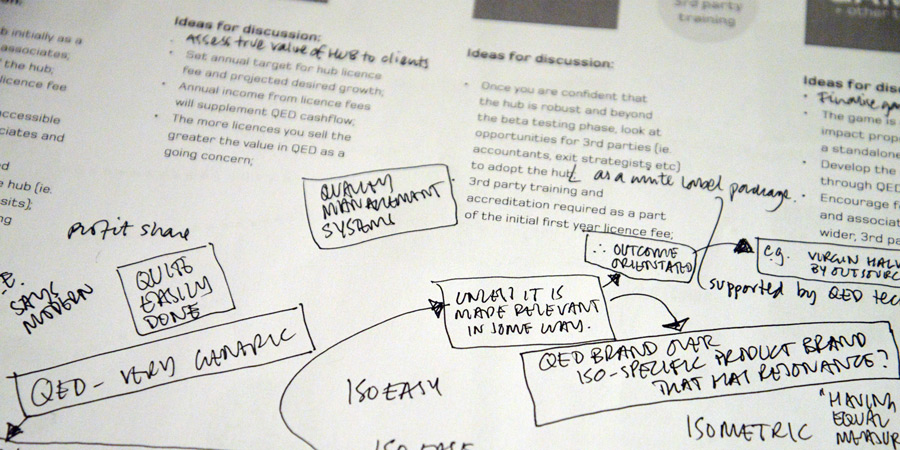 b initially as a
associates;
the hub;
licence fee
accessible
ciates and
e hub (ie.
sits);
Ideas for discussion:
• Assess true value of HUB to clients
• Set annual target for hub licence
fee and projected desired growth;
• Annual income from licence fees
will supplement QED cashflow;
• The more licences you sell the
greater the value in QED as a
going concern;
3rd party
training
Ideas for discussion:
• Once you are confident that
the hub is robust and beyond
the beta testing phase, look at
opportunities for 3rd parties (ie.
accountants, exit strategists etc)
to adopt the hub as a white label package.
3rd party training and
accreditation required as a part
of the initial first year licence fee;
+ other
Ideas for disc
• Finalise
• The game is
impact prop
a standalone
• Develop the
through QED
• Encourage
and associat
wider, 3rd pa
profit share
QUALITY
MANAGEMENT
SYSTEMS
SAYS
MODERN
QUITE
EASILY
DONE
QED - VERY GENERIC
UNLESS IT IS
MADE RELEVANT
IN SOME WAY.
∴ OUTCOME
ORIENTATED
e.g. VIRGIN
BY OUTSOURC
supported by QED tec
QED BRAND OVER
ISO-SPECIFIC PRODUCT BRAND
THAT HAS RESONANCE?
ISO EASY
ISOMETRIC
"HAVING
EQUAL
MEASUR